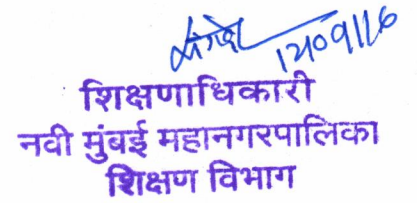 12/09/16
शिक्षणाधिकारी
नवी मुंबई महानगरपालिका
शिक्षण विभाग